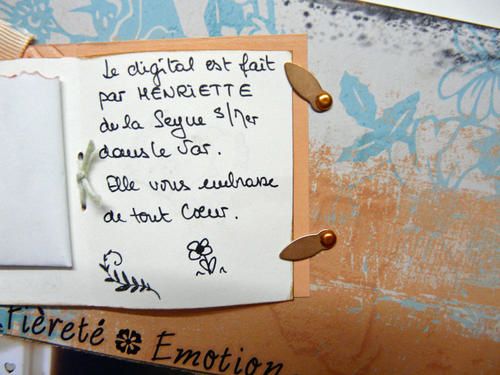 Le digital est fait
par HENRIETTE
de la Seyne S/Mer
dans le Var.
Elle vous embrasse
de tout Coeur.
Fièreté Emotion